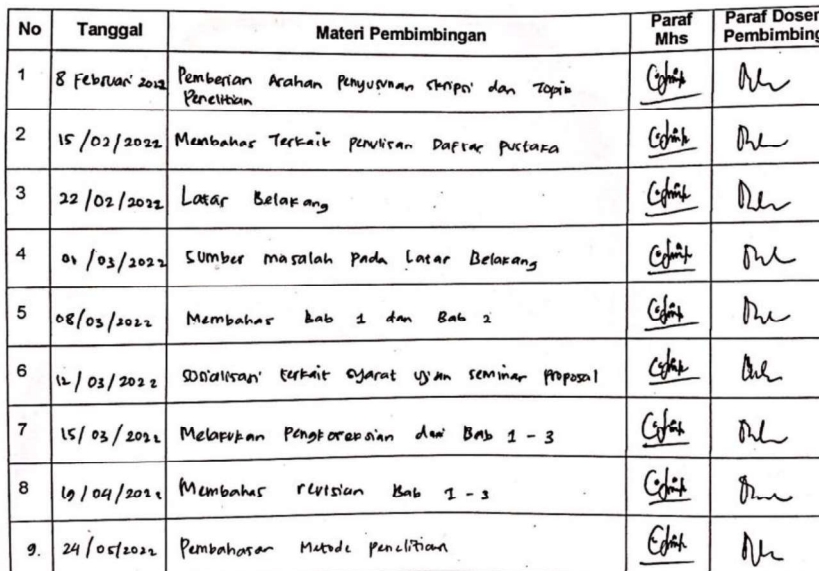 No Tanggal Materi Pembimbingan Paraf Mhs Paraf Dosen Pembimbing
1 8 Februari 2022 Pemberian Arahan Penyusunan Skripsi dan Topik
Penelitian
2 15/02/2022 Membahas Terkait penulisan Daftar pustaka
3 22/02/2022 Latar Belakang
4 01/03/2022 Sumber masalah pada Latar Belakang
5 08/03/2022 Membahas bab 1 dan Bab 2
6 12/03/2022 Sosialisasi terkait syarat ujian seminar proposal
7 15/03/2022 Melakukan Pengkoreksian dari Bab 1 - 3
8 19/04/2022 Membahas revisian Bab 1 - 3
9. 24/05/2022 Pembahasan Metode penelitian